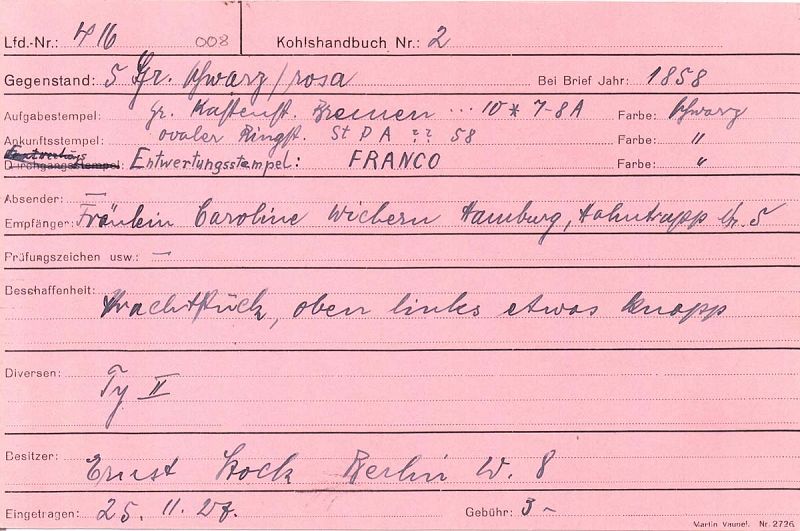 Lfd.-Nr.: 416 008 Kohlshandbuch Nr.: 2
Gegenstand: 5 Gr. schwarz/rosa Bei Brief Jahr: 1858
Aufgabestempel: gr. Kastenst. Bremen ... 10 * 7-8A Farbe: schwarz
Ankunftsstempel: ovaler Ringst. St P A ?? 58 Farbe: "
Durchgangsstempel: Entwertungsstempel: FRANCO Farbe: "
Absender: —
Empfänger: Fräulein Caroline Wichern Hamburg, Hahntrapp Nr. 5
Prüfungszeichen usw.: —
Beschaffenheit:
Prachtstück, oben links etwas knapp
Diversen:
Ty II
Besitzer:
Ernst Stock Berlin W. 8
Eingetragen: 25. 11. 27. Gebühr: 3 –
Nr. 2726